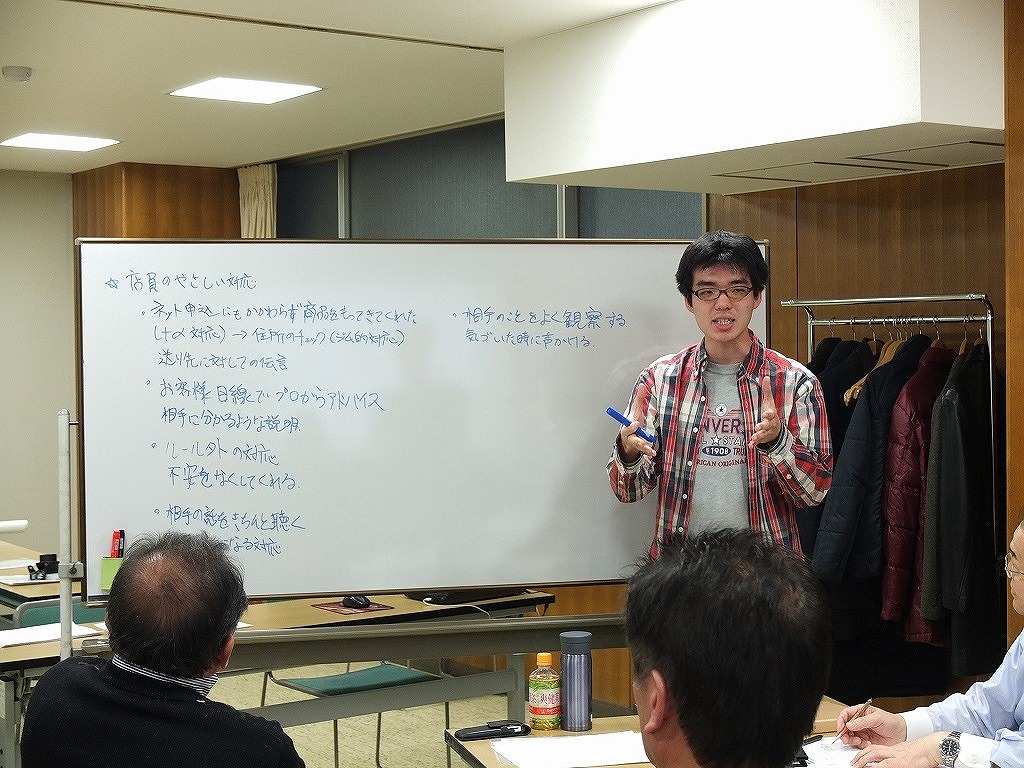 ☆ 店員のやさしい対応
・ネット申込にもかかわらず商品をもってきてくれた
(+α対応) → 住所のチェック (シム的対応)
送り先に対しての伝言
・お客様目線でプロからアドバイス
相手に分かるような説明
・ルール外の対応
不安をなくしてくれる.
・相手の話をきちんと聴く
なる対応
・相手のことをよく観察する
気づいた時に声かける.
NVER
L ★ STA
1908
RICAN ORIGINA
爽健